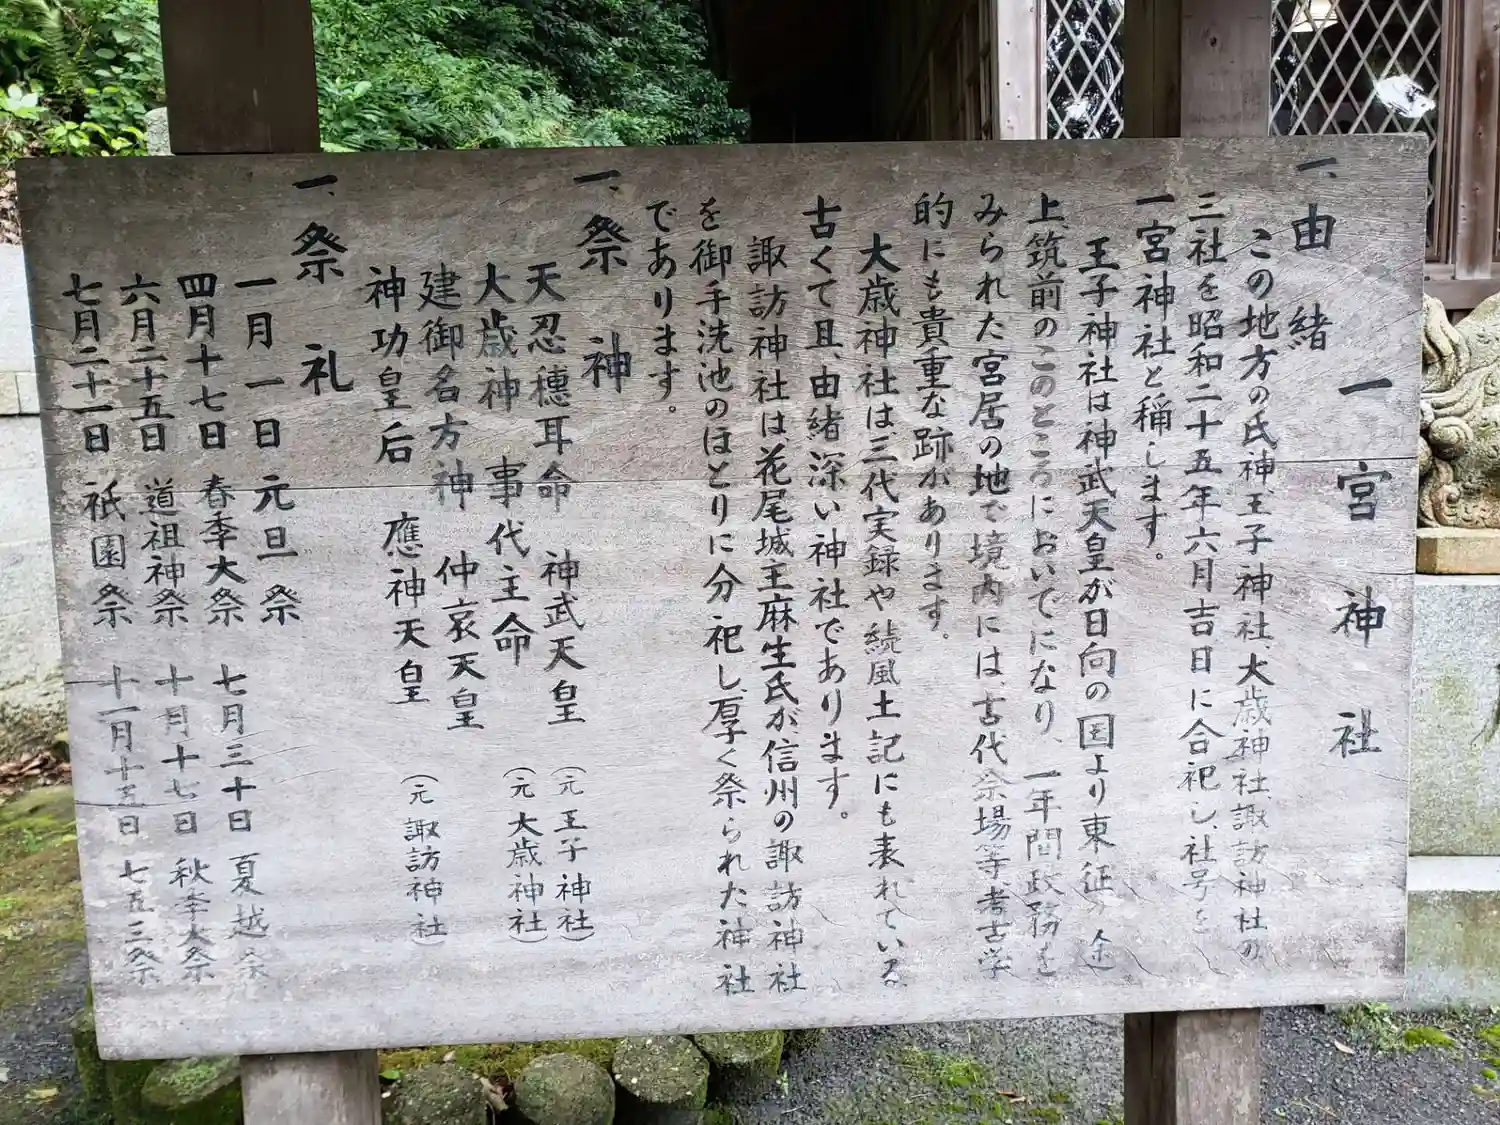 一宮神社
一、由緒
この地方の氏神、王子神社、大歳神社、諏訪神社の
三社を昭和二十五年六月吉日に合祀し、社号を
一宮神社と稱します。
王子神社は神武天皇が日向の国より東征の途
上筑前のこのところにおいでになり、一年間政務を
みられた宮居の地で境内には、古代祭場等考古学
的にも貴重な跡があります。
大歳神社は三代実録や続風土記にも表れている
古くて且、由緒深い神社であります。
諏訪神社は、花尾城主麻生氏が信州の諏訪神社
を御手洗池のほとりに分祀し、厚く祭られた神社
であります。
一、祭神
天忍穂耳命 神武天皇 (元王子神社)
大歳神 事代主命 (元大歳神社)
建御名方神 仲哀天皇
神功皇后 應神天皇 (元諏訪神社)
一、祭礼
一月一日 元旦祭 七月三十日 夏越祭
四月十七日 春季大祭 十月十七日 秋季大祭
六月二十五日 道祖神祭 十一月十五日 七五三祭
七月二十一日 祇園祭